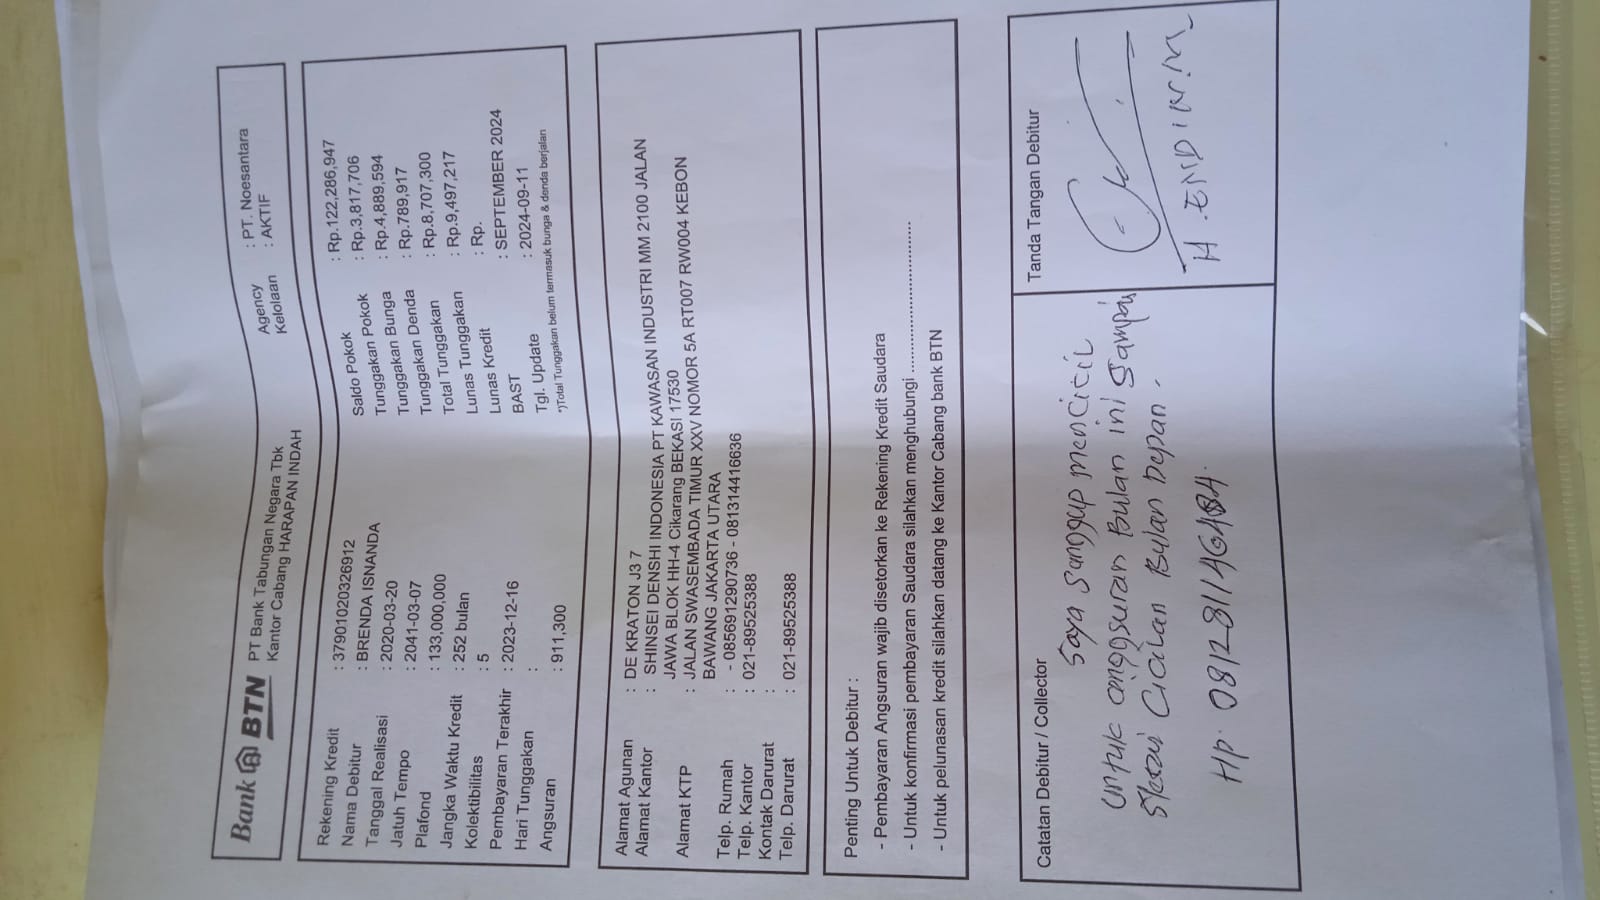 Bank BTN PT Bank Tabungan Negara Tbk
Kantor Cabang HARAPAN INDAH
Agency : PT. Noesantara
Kelolaan : AKTIF
Rekening Kredit : 37901020326912
Nama Debitur : BRENDA ISNANDA
Tanggal Realisasi : 2020-03-20
Jatuh Tempo : 2041-03-07
Plafond : 133,000,000
Jangka Waktu Kredit : 252 bulan
Kolektibilitas : 5
Pembayaran Terakhir : 2023-12-16
Hari Tunggakan :
Angsuran : 911,300
Saldo Pokok : Rp.122,286,947
Tunggakan Pokok : Rp.3,817,706
Tunggakan Bunga : Rp.4,889,594
Tunggakan Denda : Rp.789,917
Total Tunggakan : Rp.8,707,300
Lunas Tunggakan : Rp.9,497,217
Lunas Kredit : Rp.
BAST : SEPTEMBER 2024
Tgl. Update : 2024-09-11
*)Total Tunggakan belum termasuk bunga & denda berjalan
Alamat Agunan : DE KRATON J3 7
Alamat Kantor : SHINSEI DENSHI INDONESIA PT KAWASAN INDUSTRI MM 2100 JALAN
JAWA BLOK HH-4 Cikarang BEKASI 17530
Alamat KTP : JALAN SWASEMBADA TIMUR XXV NOMOR 5A RT007 RW004 KEBON
BAWANG JAKARTA UTARA
Telp. Rumah : - 085691290736 - 081314416636
Telp. Kantor : 021-89525388
Kontak Darurat :
Telp. Darurat : 021-89525388
Penting Untuk Debitur :
- Pembayaran Angsuran wajib disetorkan ke Rekening Kredit Saudara
- Untuk konfirmasi pembayaran Saudara silahkan menghubungi ........................................
- Untuk pelunasan kredit silahkan datang ke Kantor Cabang bank BTN
Catatan Debitur / Collector
Saya sanggup mencicil
untuk angsuran Bulan ini Sampai
Cicilan Bulan Depan.
Hp.
Tanda Tangan Debitur